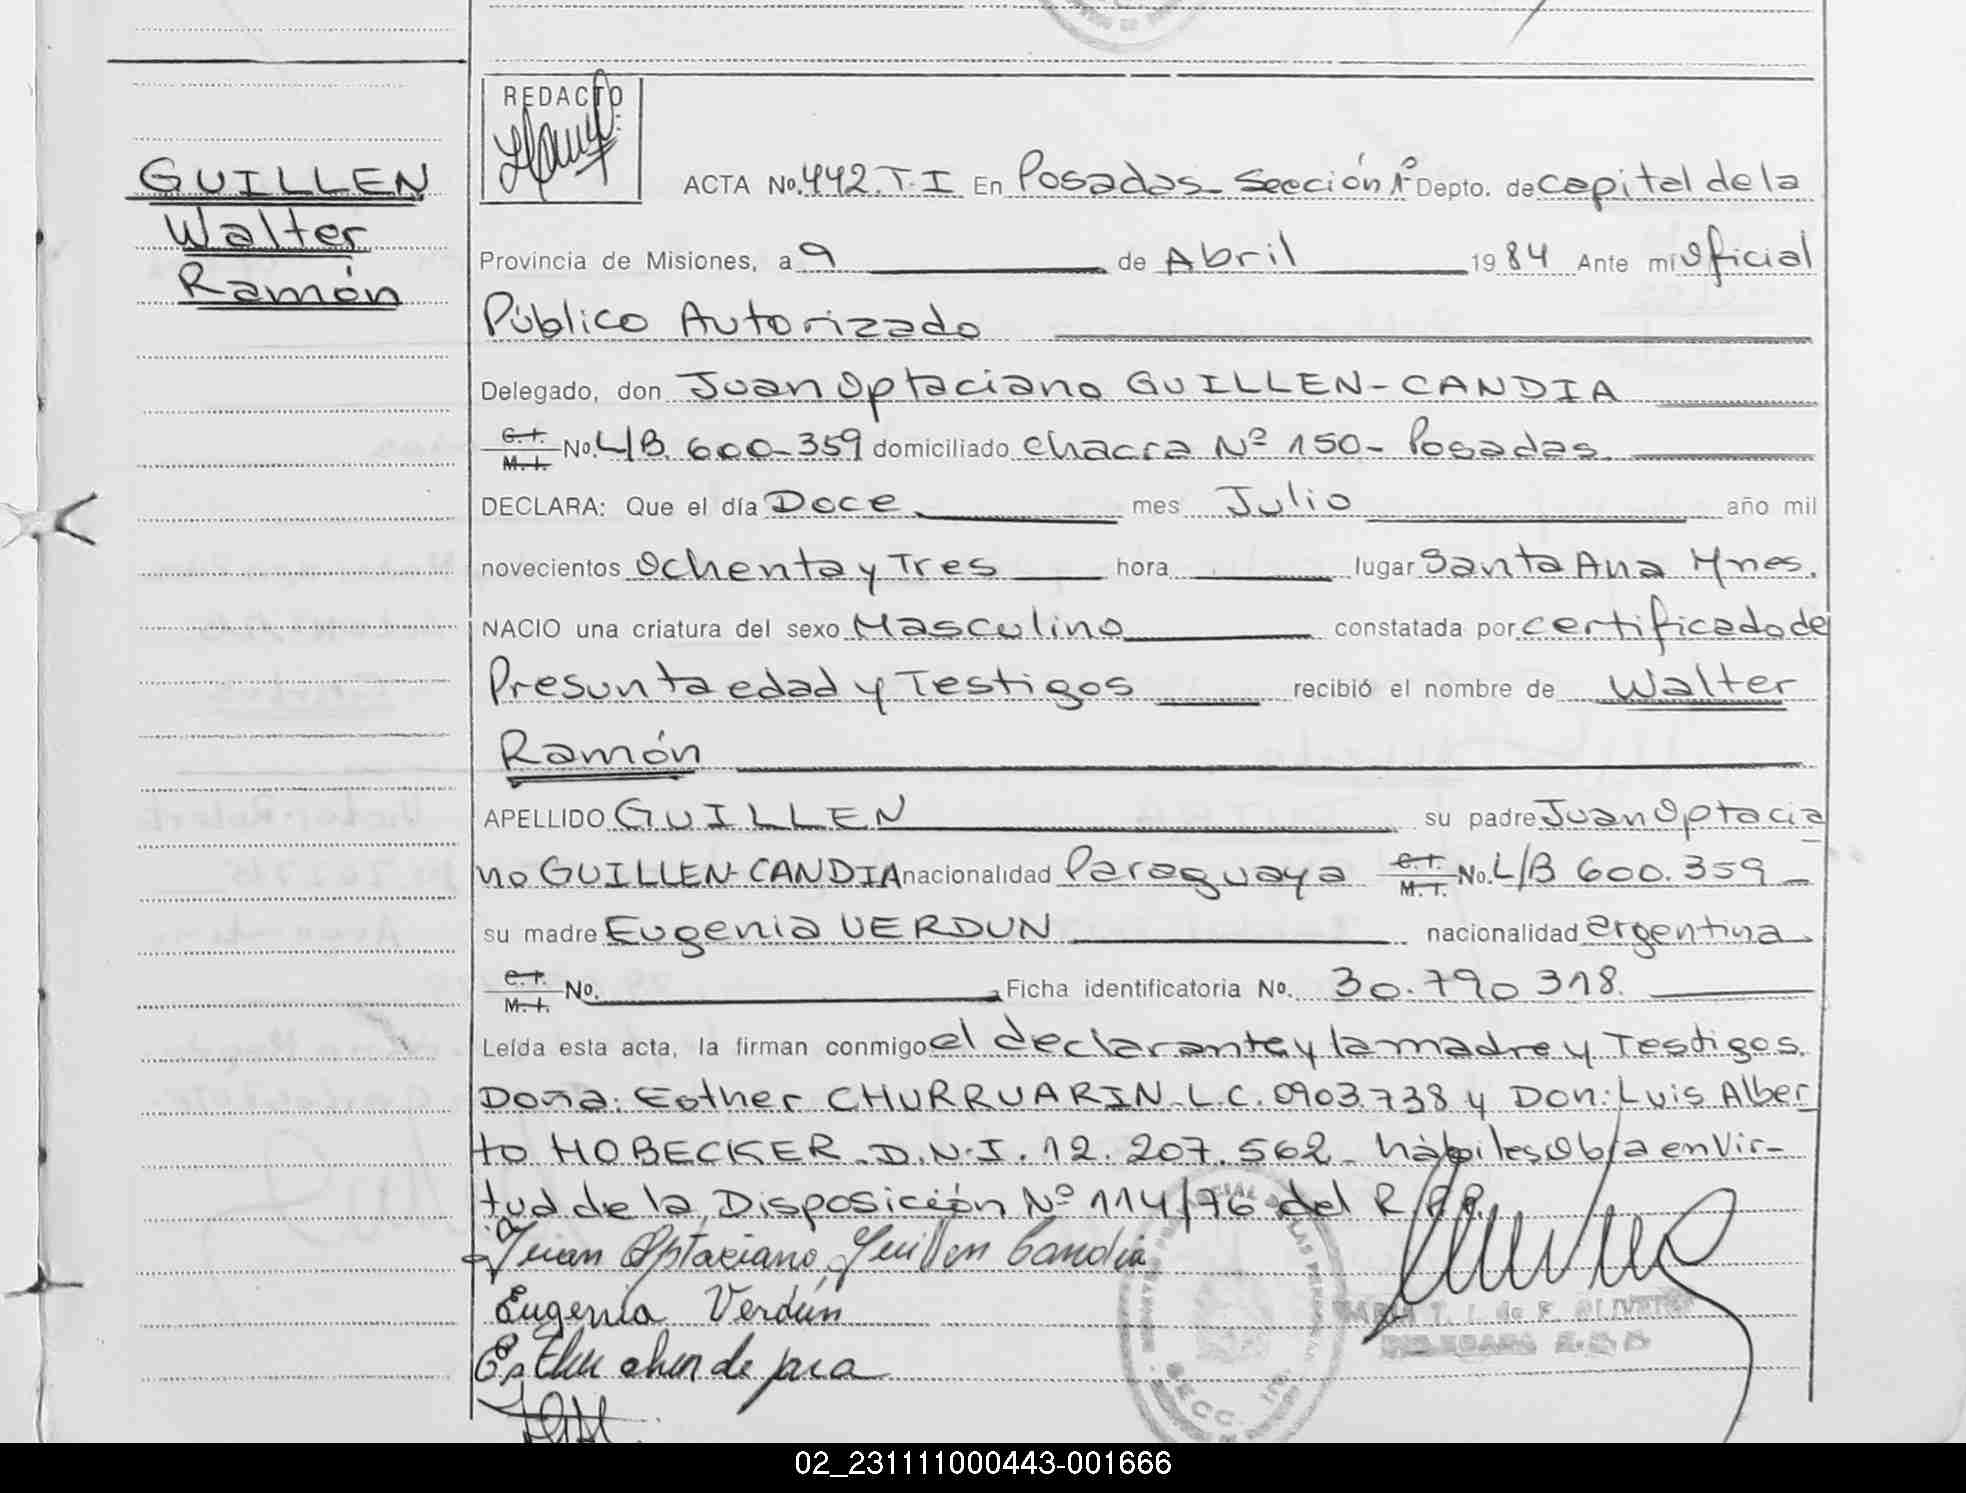 REDACTO
GUILLEN
Walter
Ramón
ACTA No. 442.T.I En Posadas Sección 1º Depto. de Capital de la
Provincia de Misiones, a 9 de Abril 1984 Ante mi Oficial
Público Autorizado
Delegado, don Juan Optaciano GUILLEN-CANDIA
C.I. M.I. No. L/B 600-359 domiciliado Chacra Nº 150- Posadas.
DECLARA: Que el día Doce mes Julio año mil
novecientos Ochenta y Tres hora lugar Santa Ana Mnes.
NACIO una criatura del sexo Masculino constatada por certificado de
Presunta edad y Testigos recibió el nombre de Walter
Ramón
APELLIDO GUILLEN su padre Juan Optacia
no GUILLEN-CANDIA nacionalidad Paraguaya C.I. M.I. No. L/B 600.359
su madre Eugenia VERDUN nacionalidad argentina
C.I. M.I. No. Ficha identificatoria No. 30.790 318.
Leída esta acta, la firman conmigo el declarante y la madre y Testigos.
Doña: Esther CHURRUARIN L.C. 0903.738 y Don: Luis Alber
to HOBECKER D.N.I. 12.207.562 hábiles Obra en Vir-
tud de la Disposición Nº 114/76 del R.P.P.
Juan Optaciano Guillen Candia
Eugenia Verdún
02_231111000443-001666